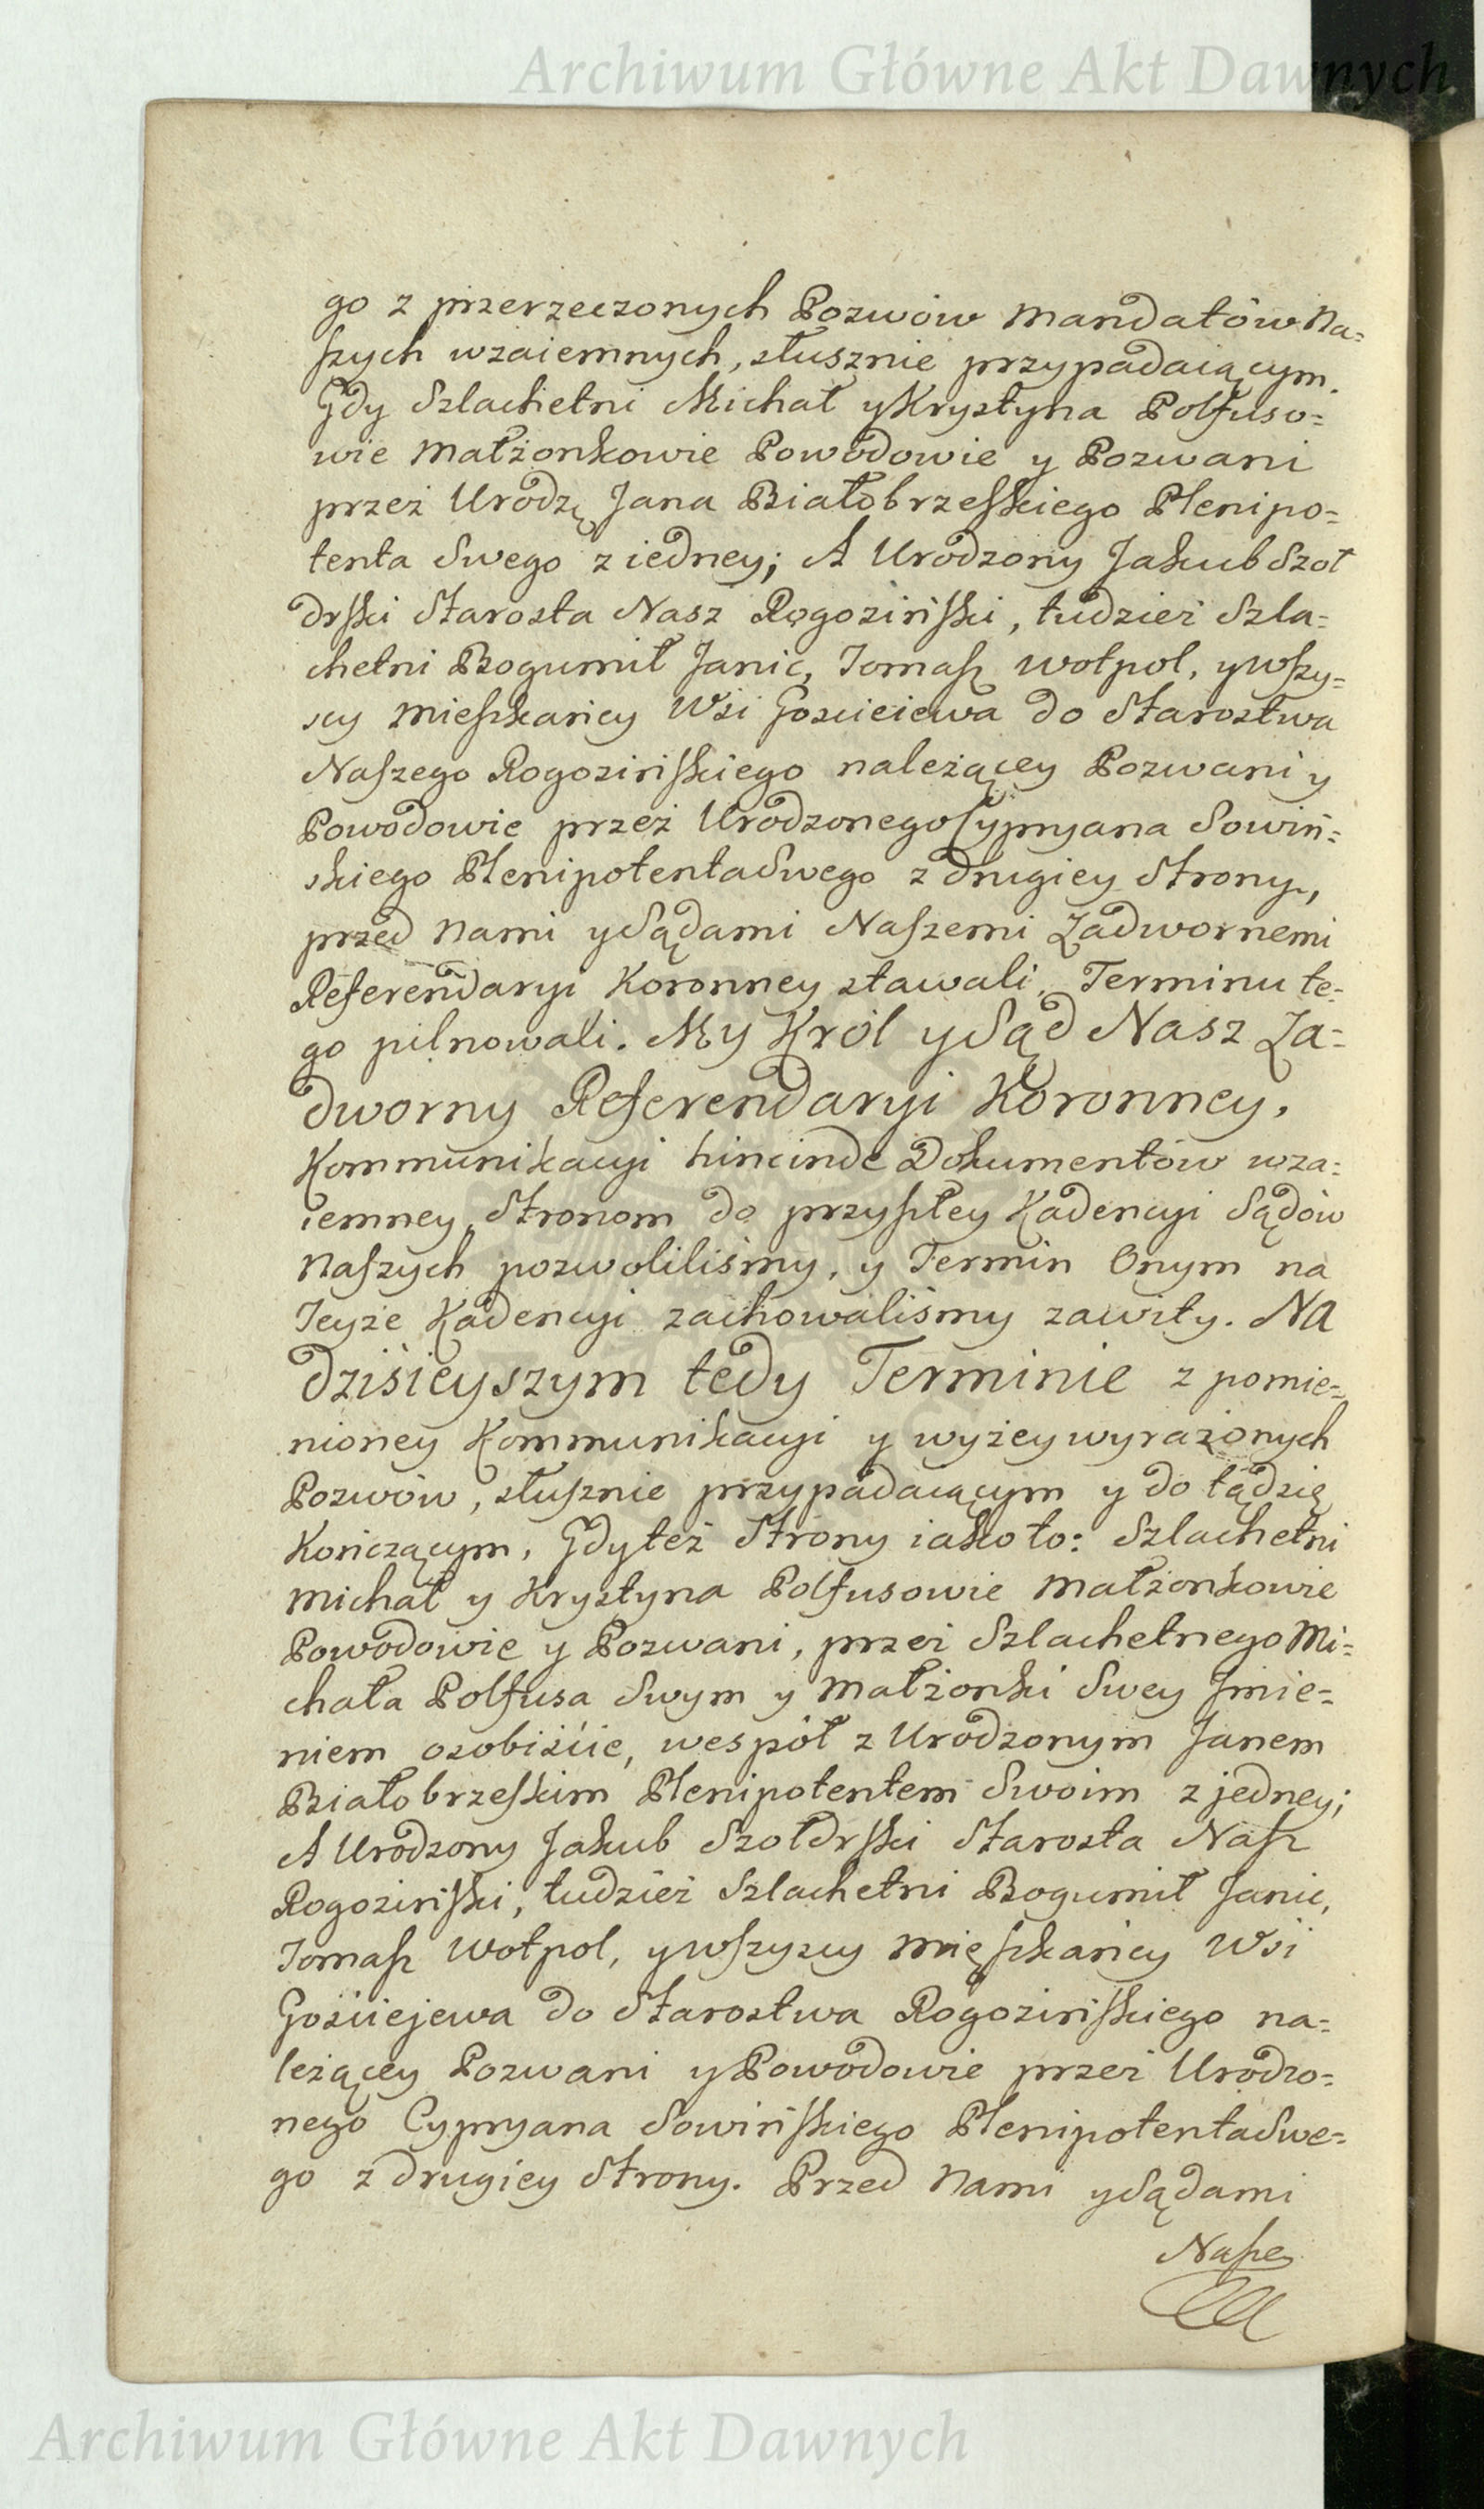 Archiwum Główne Akt Dawnych
go z przerzeczonych Pozwów Mandatów Na=
szych wzaiemnych, słusznie przypadaiącym.
Gdy Szlachetni Michał y Krystyna Polfuso=
wie Małżonkowie Powodowie y Pozwani
przez Urodzę Jana Białobrzeskiego Plenipo=
tenta Swego z iedney; A Urodzony Jakub Szoł
drski Starosta Nasz Rogoziński, tudzież Szla=
chetni Bogumił Janic, Tomasz Wołpol, y Wszy=
scy Mieszkańcy Wsi Gościeiewa do Starostwa
Naszego Rogozińskiego należącey Pozwani y
Powodowie przez Urodzonego Cypryana Sowiń=
skiego Plenipotenta Swego z drugiey Strony,
przed Nami y Sądami Naszemi Zadwornemi
Referendaryi Koronney stawali, Terminu te=
go pilnowali. My Król y Sąd Nasz Za=
dworny Referendaryi Koronney,
Kommunikacyi hincinde Dokumentów wza=
iemney Stronom do przyszłey Kadencyi Sądów
Naszych pozwoliliśmy, y Termin Onym na
Teyże Kadencyi zachowaliśmy zawity. Na
dzisieyszym tedy Terminie z pomie=
nioney Kommunikacyi y wyżey wyrażonych
Pozwów, słusznie przypadaiącym y do tądzię
Kończącym, Gdy też Strony iako to: Szlachetni
Michał y Krystyna Polfusowie Małżonkowie
Powodowie y Pozwani, przez Szlachetnego Mi=
chała Polfusa Swym y Małżonki Swey Jmie=
niem osobiście, wespół z Urodzonym Janem
Białobrzeskim Plenipotentem Swoim z jedney;
A Urodzony Jakub Szołdrski Starosta Nasz
Rogoziński, tudzież Szlachetni Bogumił Janic,
Tomasz Wołpol, y wszyscy Mięszkańcy Wsi
Gościejewa do Starostwa Rogozińskiego na=
leżącey Pozwani y Powodowie przez Urodzo=
nego Cypryana Sowińskiego Plenipotenta Swe=
go z drugiey Strony. Przed Nami y Sądami
Nasze
Archiwum Główne Akt Dawnych